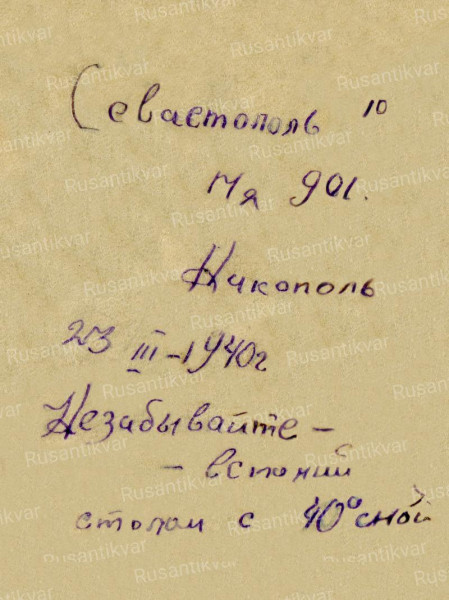 Севастополь 10
п/я 901.
Никополь
23 III-1940г
Незабывайте -
- вспомний
столом с 40°сной
Rusantikvar